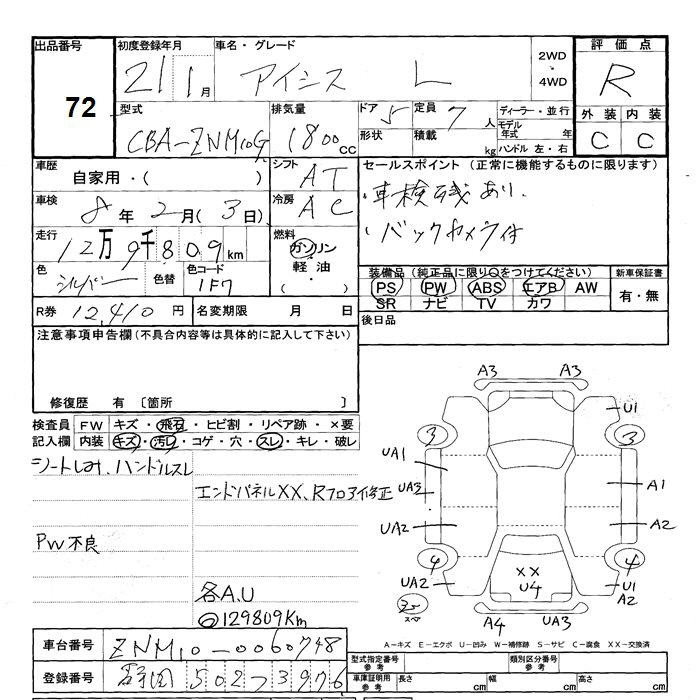 出品番号
72
初度登録年月
21 1月
車名・グレード
アイシス L
2WD・4WD
評価点
R
外装 内装
C C
型式
CBA-ZNM10G
排気量
1800cc
ドア 5
定員 7人
形状
積載 kg
ディーラー・並行
モデル年式 年
ハンドル 左・右
車歴
自家用・( )
シフト
AT
セールスポイント(正常に機能するものに限ります)
・車検残あり.
・バックカメラ付
車検
8年2月(3日)
冷房
AC
走行
12万9千809km
燃料
ガソリン・軽油・
色
シルバー
色替
色コード
1F7
装備品(純正品に限り○をつけてください)
PS PW ABS エアB AW
SR ナビ TV カワ
新車保証書
有・無
R券 12,410円
名変期限 月 日
後日品
注意事項申告欄(不具合内容等は具体的に記入して下さい)
修復歴 有 〔箇所 〕
検査員記入欄
FW キズ・飛石・ヒビ割・リペア跡・×要
内装 キズ・汚レ・コゲ・穴・スレ・キレ・破レ
シートしみ、ハンドルスレ
エンドパネルXX、Rフロア修正
PW不良
各A.U
129809Km
A3 A3
U1
3 3
UA1
UA3
A1
UA2
A2
4 4
UA2
XX
U4
U1
A2
スペア
A4 UA3
A-キズ E-エクボ U-凹み W-補修跡 S-サビ C-腐食 XX-交換済
車台番号 ZNM10-0060748
登録番号 静岡 502 3976
型式指定番号 参考
類別区分番号 参考
車庫証明用 参考
長さ cm
幅 cm
高さ cm